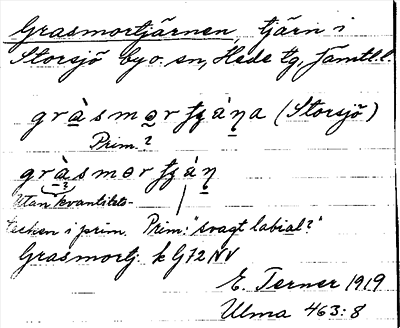 Grasmortjärnen, tjärn i
Storsjö by o. sn, Hede tg, Jämtl. l.
gràsmǝr tʒána (Storsjö)
Prim.?
gràsmɵr tʒán
Utan kvantitets-
tecken i prim. Prim: "svagt labial?"
Grasmortj. k G72 NV
E. Terner 1919
Ulma 463:8